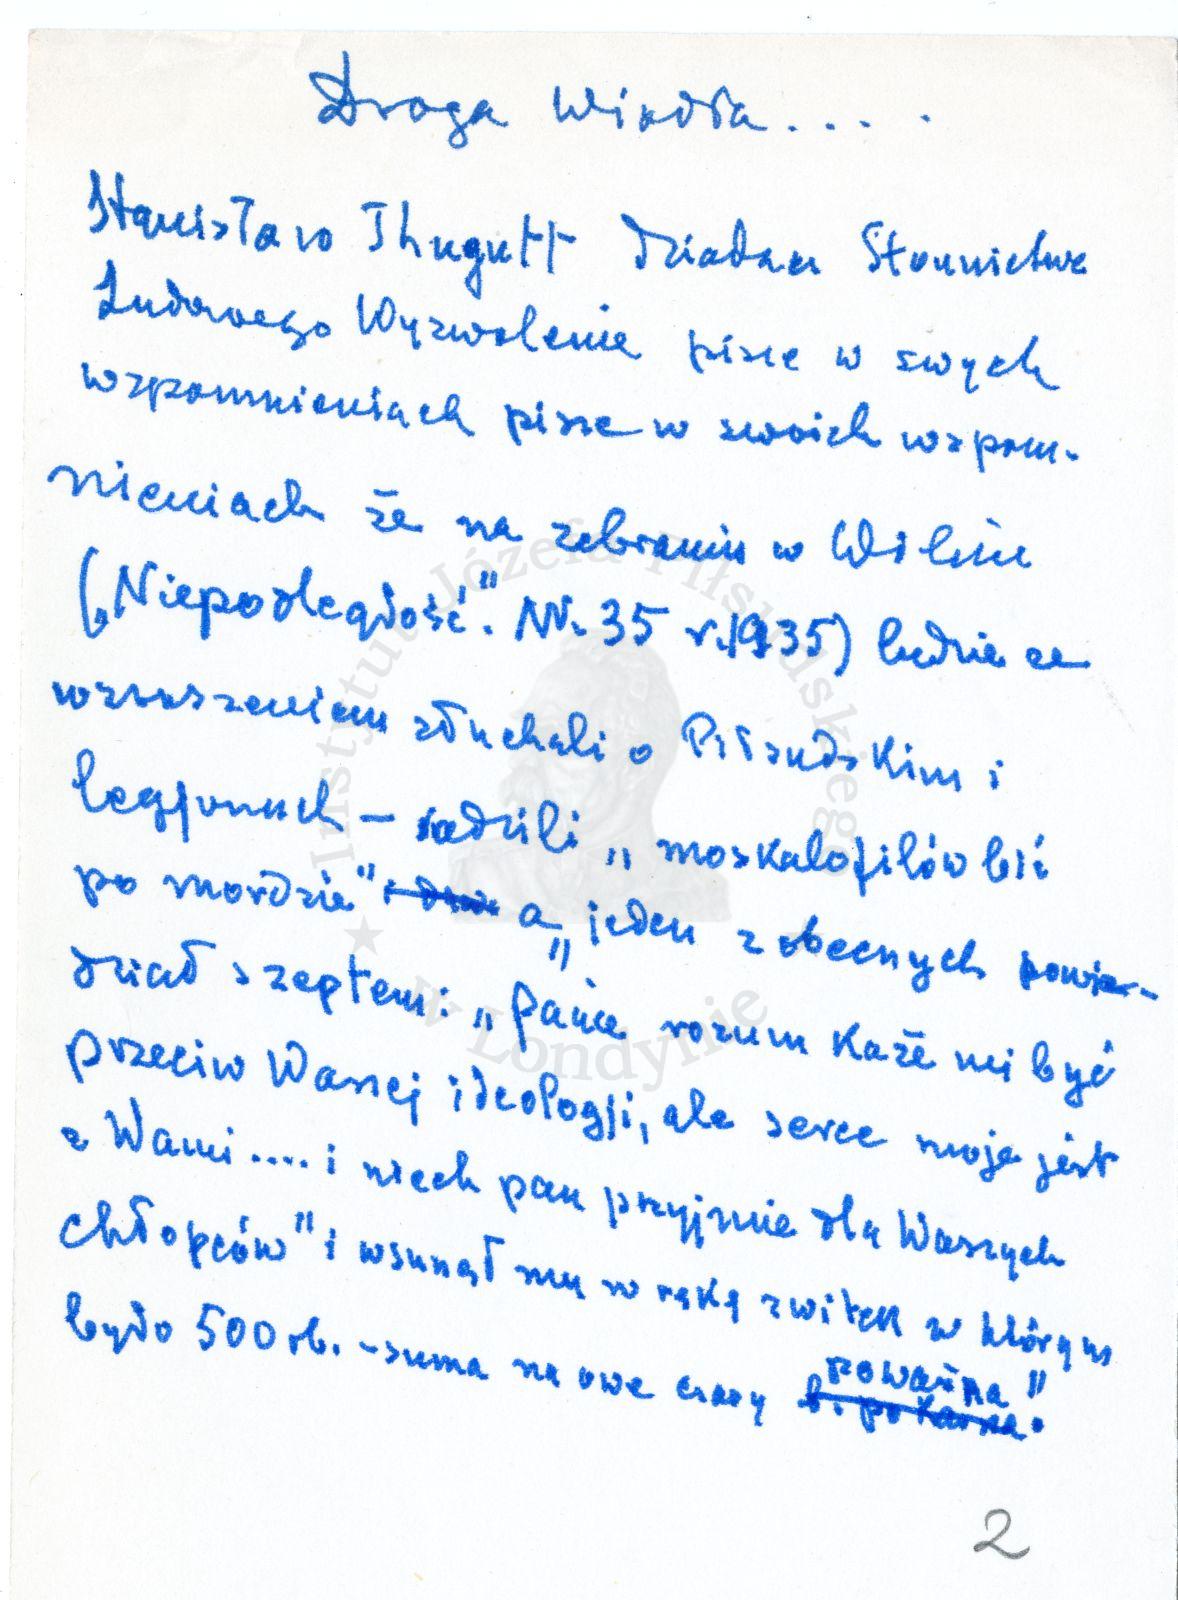 Droga wiodła.....
Stanisław Thugutt działacz Stonnictwa
Ludowego Wyzwolenie pisze w swych
wspomnieniach pisze w swoich wspom-
nieniach że na zebraniu w Wilnie
("Niepodległość". Nr. 35 r. 1935) ludzie ze
wzruszeniem słuchali o Piłsudskim i
legjonach - radzili "moskalofilów bić
po mordzie" a "jeden z obecnych powie-
dział szeptem: "Panie rozum każe mi być
przeciw Waszej ideologji, ale serce moje jest
z Wami .... i niech pan przyjmie dla Waszych
chłopców" i wsunął mu w rękę zwitek w którym
było 500 rb. - suma na owe czasy b. pokaźna poważna".
2
Instytut Józefa Piłsudskiego
w Londynie